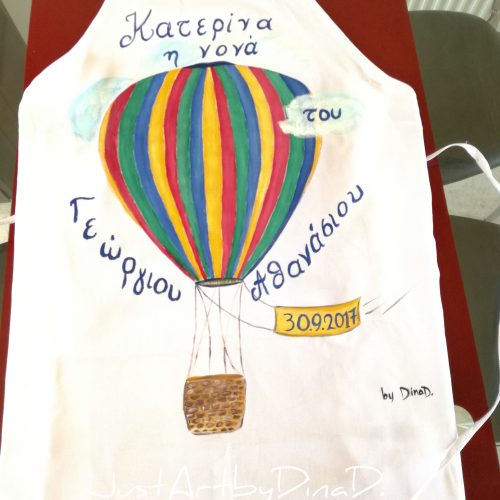 Κατερίνα
η νονά
του
Γεώργιου
Αθανάσιου
30.9.2017
by DinaD.
JustArtbyDinaD.